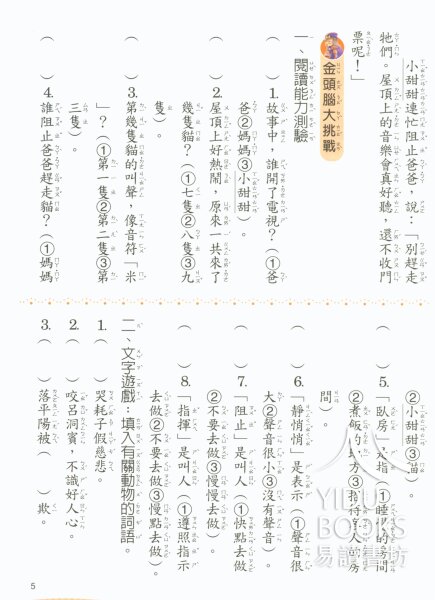 小甜甜連忙阻止爸爸,說:「別趕走
牠們。屋頂上的音樂會真好聽,還不收門
票呢!」
金頭腦大挑戰
一、閱讀能力測驗
( )1.故事中,誰開了電視?(①爸
爸②媽媽③小甜甜)。
( )2.屋頂上好熱鬧,原來一共來了
幾隻貓?(①七隻②八隻③九
隻)。
( )3.第幾隻貓的叫聲,像音符「米
」?(①第一隻②第二隻③第
三隻)。
( )4.誰阻止爸爸趕走貓?(①媽媽
②小甜甜③貓)。
( )5.「臥房」是指(①睡眠的房間
②煮飯的地方③招待客人的房
間)。
( )6.「靜悄悄」是表示(①聲音很
大②聲音很小③沒有聲音)。
( )7.「阻止」是叫人(①快點去做
②不要去做③慢慢去做)。
( )8.「指揮」是叫人(①遵照指示
去做②不要去做③慢點去做)。
二、文字遊戲:填入有關動物的詞語。
1.( )哭耗子假慈悲。
2.( )咬呂洞賓,不識好人心。
3.( )落平陽被( )欺。
5
BOOKS
易讀書坊